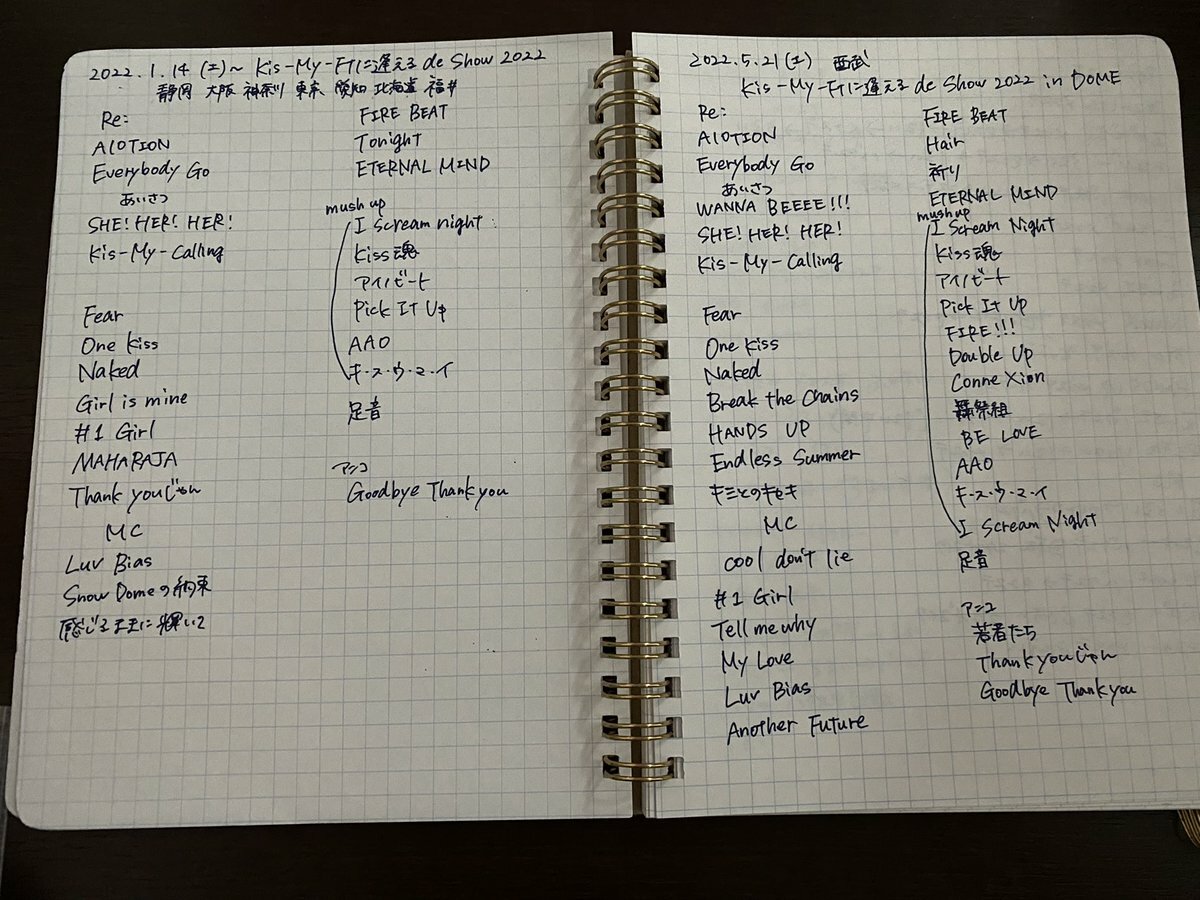 2022.1.14 (土)~ Kis-My-Ftに逢える de Show 2022
静岡 大阪 神奈川 東京 愛知 北海道 福井
Re:
A1OTION
Everybody Go
あいさつ
SHE! HER! HER!
Kis-My-Calling
Fear
One Kiss
Naked
Girl is mine
#1 Girl
MAHARAJA
Thank youじゃん
MC
Luv Bias
Snow Domeの約束
感じるままに輝いて
FIRE BEAT
Tonight
ETERNAL MIND
mush up
I Scream night
Kiss魂
アイノビート
Pick It Up
AAO
キ・ス・ウ・マ・イ
足音
アンコ
Goodbye Thank you
2022.5.21 (土) 西武
Kis-My-Ftに逢える de Show 2022 in DOME
Re:
A1OTION
Everybody Go
あいさつ
WANNA BEEEE!!!
SHE! HER! HER!
Kis-My-Calling
Fear
One Kiss
Naked
Break the Chains
HANDS UP
Endless Summer
キミとのキセキ
MC
cool don't lie
#1 Girl
Tell me why
My Love
Luv Bias
Another Future
FIRE BEAT
Hair
祈り
ETERNAL MIND
mush up
I Scream Night
Kiss魂
アイノビート
Pick It Up
FIRE!!!
Double Up
ConneXion
舞祭組
BE LOVE
AAO
キ・ス・ウ・マ・イ
I Scream Night
足音
アンコ
若者たち
Thank youじゃん
Goodbye Thank you